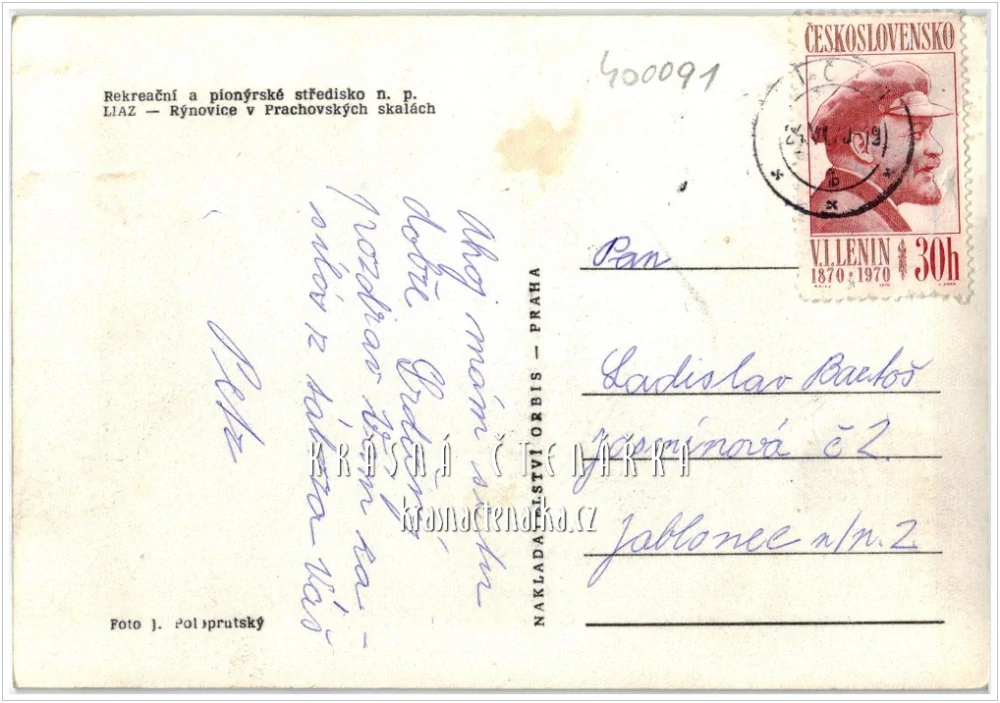 Rekreační a pionýrské středisko n. p.
LIAZ — Rýnovice v Prachovských skalách
400091
ČESKOSLOVENSKO
V.I.LENIN
1870 • 1970
30h
Ahoj mám se tu
dobře Srdečný
pozdrav Vám za-
sílá z tábora Váš
Petr
NAKLADATELSTVÍ ORBIS — PRAHA
Pan
Ladislav Bartoš
Jasmínová č 2.
Jablonec n/n. 2
KRÁSNÁ ČTENÁŘKA
krasnactenarka.cz
Foto J. Poloprutský